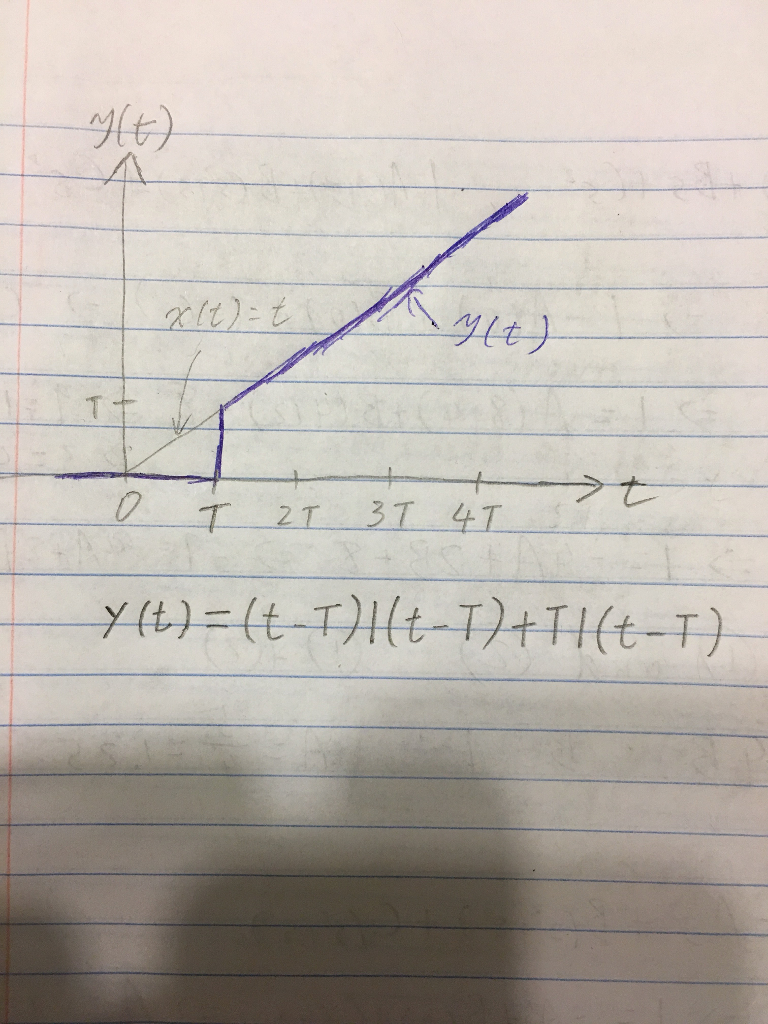 y(t)
x(t)=t
y(t)
T
0 T 2T 3T 4T t
y(t)=(t-T)1(t-T)+T1(t-T)